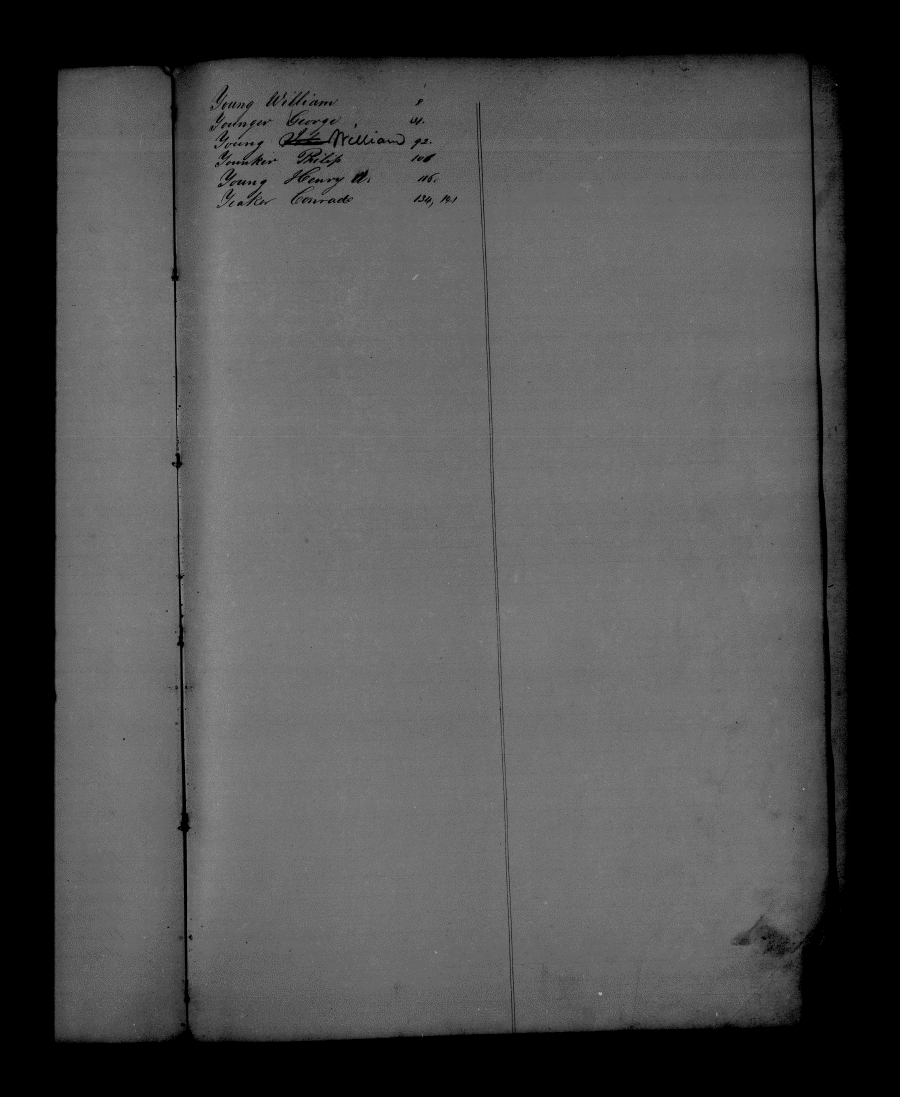 Young William 8
Younger George 41.
Young William 92.
Younker Philip 106
Young Henry A. 116.
Yeaker Conrade 134, 141